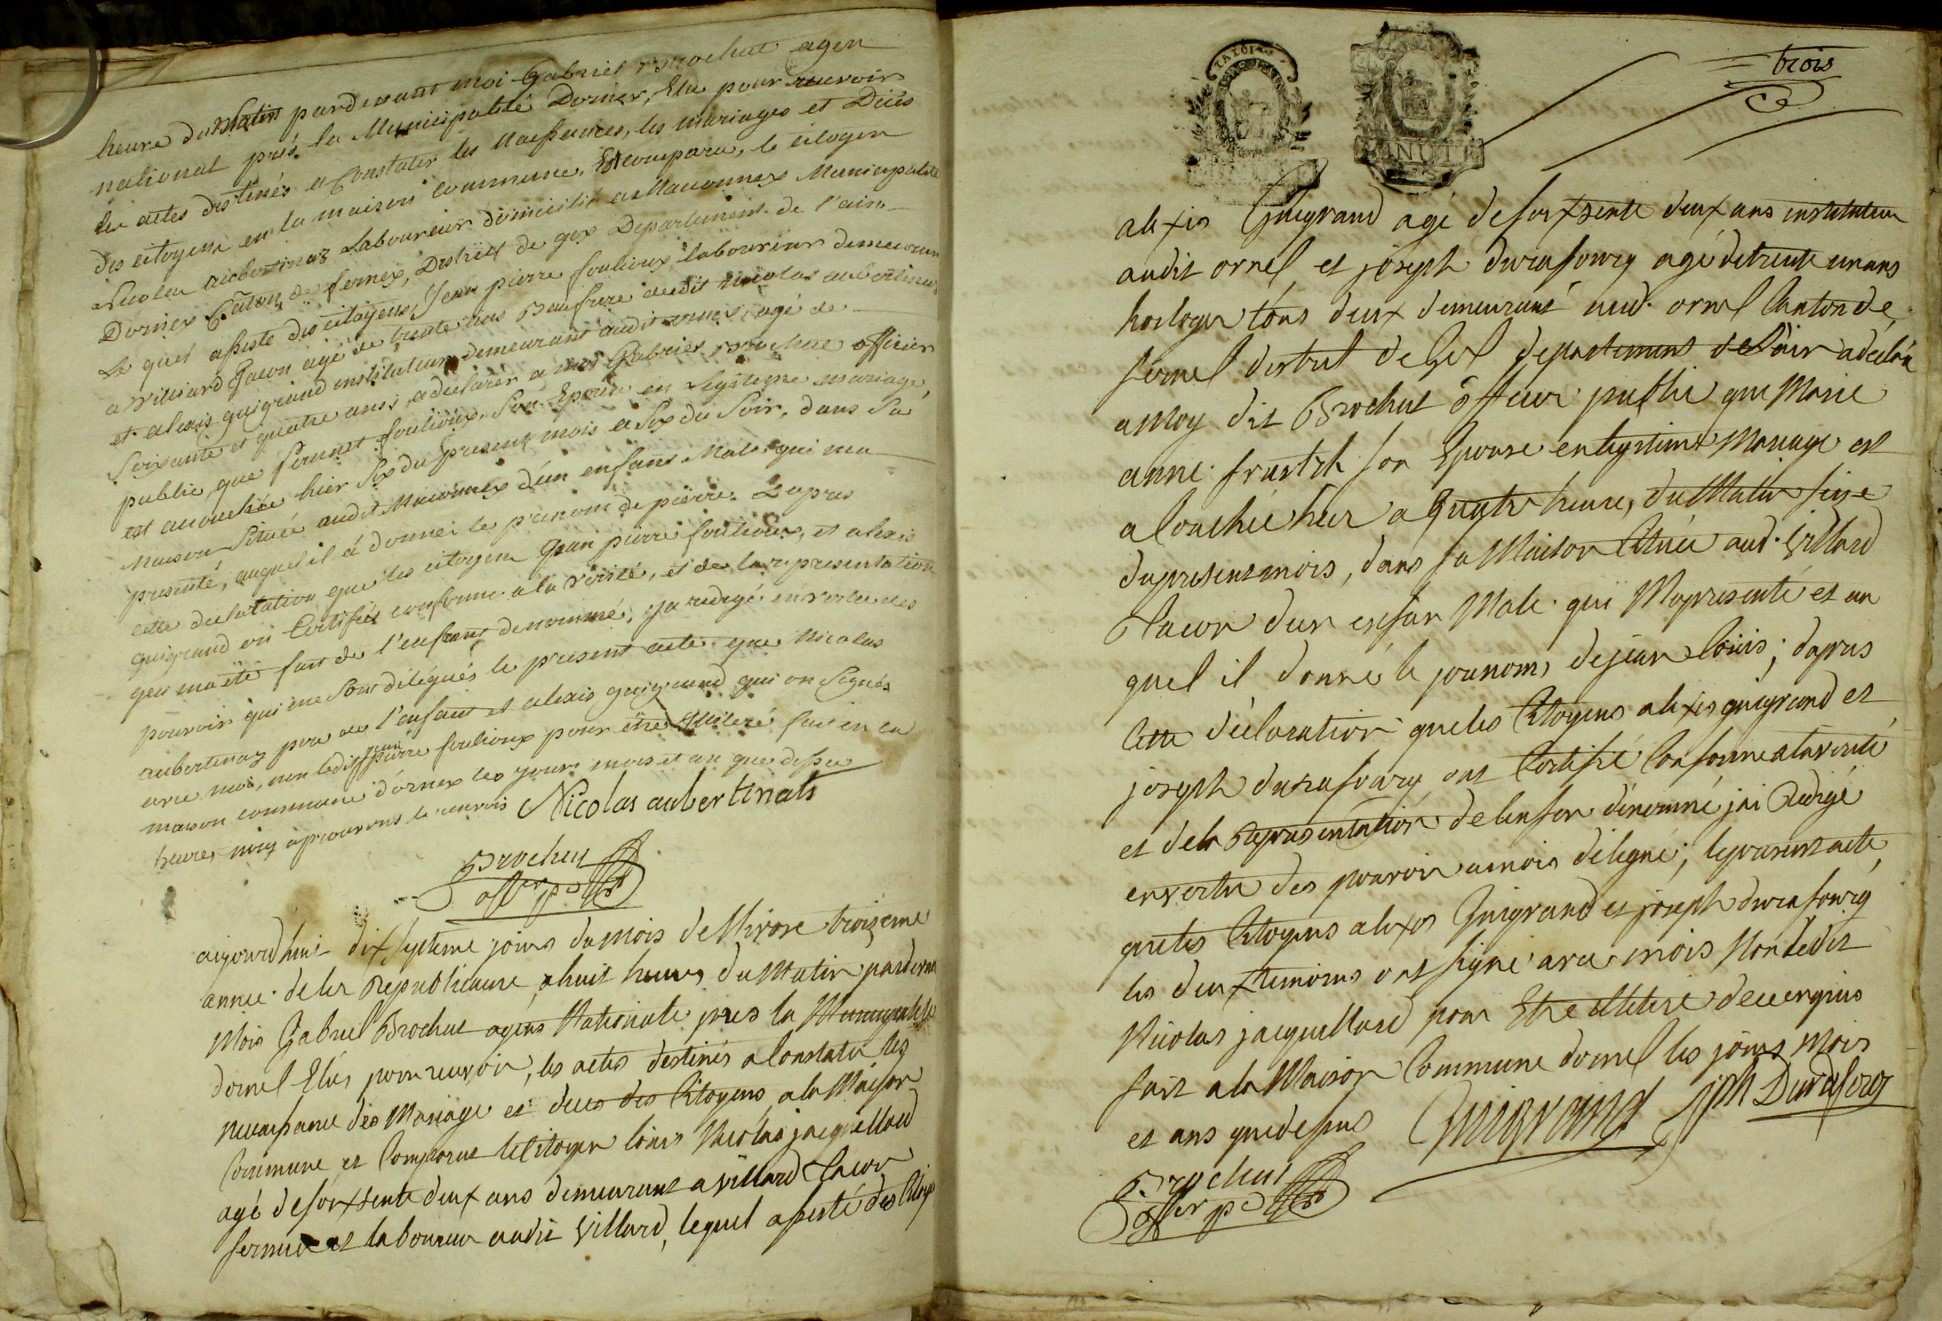 heure du Matin pardevant moi Gabriel Brochut agen
national près la Municipalité Dornex, Elu pour recevoir
les actes destinés a Constater les Naissances, les mariages et Décès
des citoyens en la maison commune, Est comparu, le citoyen
Nicolas aubertinaz Laboureur domicilié a Mauconnex Municipalité
Dornex Canton de fernex, District de gex Département de l'ain
Le quel assisté des citoyens Jean pierre foulioux laboureur demeurant
a Villiard Tacon agé de trente ans Beaufrere dudit nicolas aubertinaz
et alexis guigrand instituteur demeurant audit ornex agé de
Soixante et quatre ans, a déclarer a moi Gabriel Brochut officier
public, que pernet foulioux, Son Epouse en Légitime mariage,
est accouchée hier Six du présent mois a Six du Soir, dans Sa
maison Située audit Mauconnex d'un enfant Male qui ma
presenté, auquel il a donner le prénom de pierre. D'apres
cette declaration que les citoyens Jean pierre foulioux, et alexis
guigrand on Certifiés conforme a la vérité, et de la representation
qui ma été fait de l'enfant denommé, j'a redigé en vertu des
pouvoir qui me Sont délégués le present acte que Nicolas
aubertinaz pere de l'enfant et alexis guigrand qui on Signés
avec moi, non ledit jean pierre foulioux pour être illiteré fait en la
maison commune d'ornex les jour mois et an que dessu
heures
Nicolas aubertinats
Brochut
offer p c
aujourdhui dix Septieme jours du mois de Nivose troizeme
annee de la Republicaine, a huit heures du Matin pardevant
Mois Gabriel Brochut agens Nationale pres la Municipalité
dornel Elus pour recevoir, les actes destinés a Constater les
necesances des Mariage et deces des Citoyens, a la Maison
Commune est Comparut le Citoyen louis Nicolas jacquellard
agé de soixsente deux ans demeurant a villard Tacon
fermier et laboureur audit Villard, lequel assisté des Citoyens
trois
MINUTE
alexis Guigrand agé de soixsente deux ans instituteur
audit ornel et joseph durafourg agé de trente un ans
horloger tous deux demeurant aud. ornel Canton de
fernel distrit de Gel departement de l'ain a declaré
a Moy dit Brochut officier public que Marie
anne son Epouse en legitime Mariage est
a Couchée hier a quatre heure, du Matin seize
du present mois, dans sa Maison Située aud. Villard
Tacon d'un enfan Male qui M'a presenté et au
quel il donné le prenom, de jean louis; dapres
Cette déclaration que les Citoyens alexis guigrand et
joseph durafourg ont Certifié Conforme a la verité
et de la Representation de lenfan dénommé jai Redigé
en vertu des pouvoir a mois délegué; le present acte,
que les Citoyens alexis Guigrand et joseph durafourg
les deux temoins ont signé avec mois Non ledit
Nicolas jacquellard pour Etre illiteré de ce enquis
fait a la Maison Commune dornel les jours Mois
et ans que desus
Guigrand Jph Durafour
Brochut
offer p c